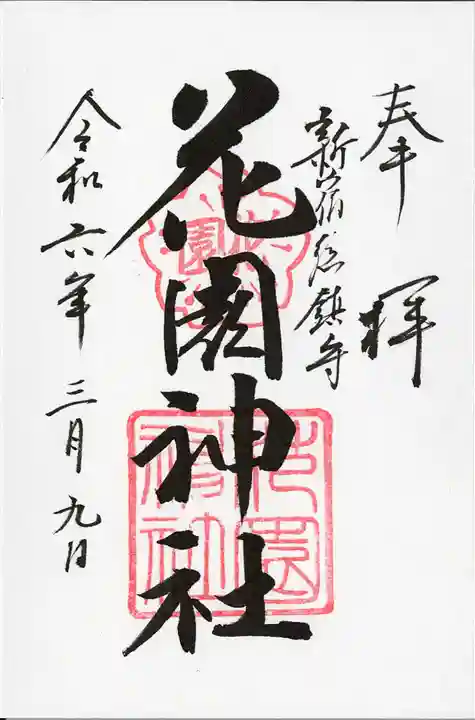 奉拝
新宿総鎮守
花園神社
令和六年三月九日
花園
花園神社